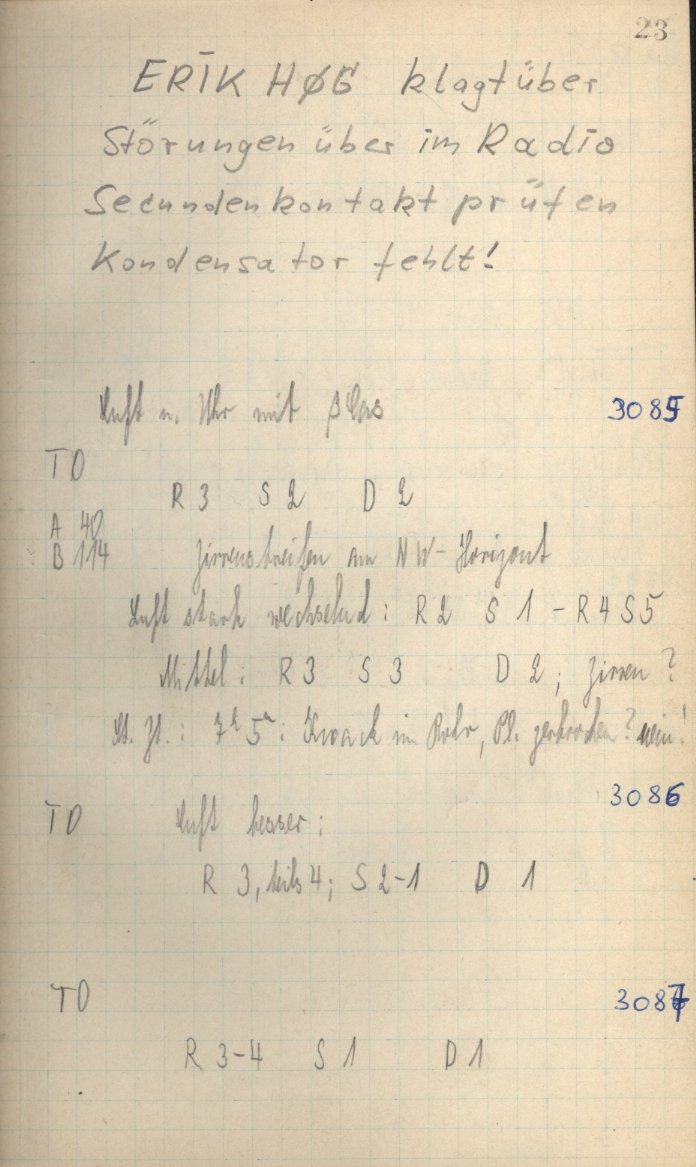 23
ERIK HØG klagt über
Störungen über im Radio
Secundenkontakt prüfen
Kondensator fehlt!
Luft u. Uhr mit β Cas 3085
TO
R 3 S 2 D 2
A 40
B 114 Zirrenstreifen am NW-Horizont
Luft stark wechselnd: R 2 S 1 - R 4 S 5
Mittel: R 3 S 3 D 2; Zirren?
St. Zt.: 7h 5m: Knack im Rohr, Pl. zerbrochen? nein!
3086
TO Luft besser:
R 3, teils 4; S 2-1 D 1
TO 3087
R 3-4 S 1 D 1